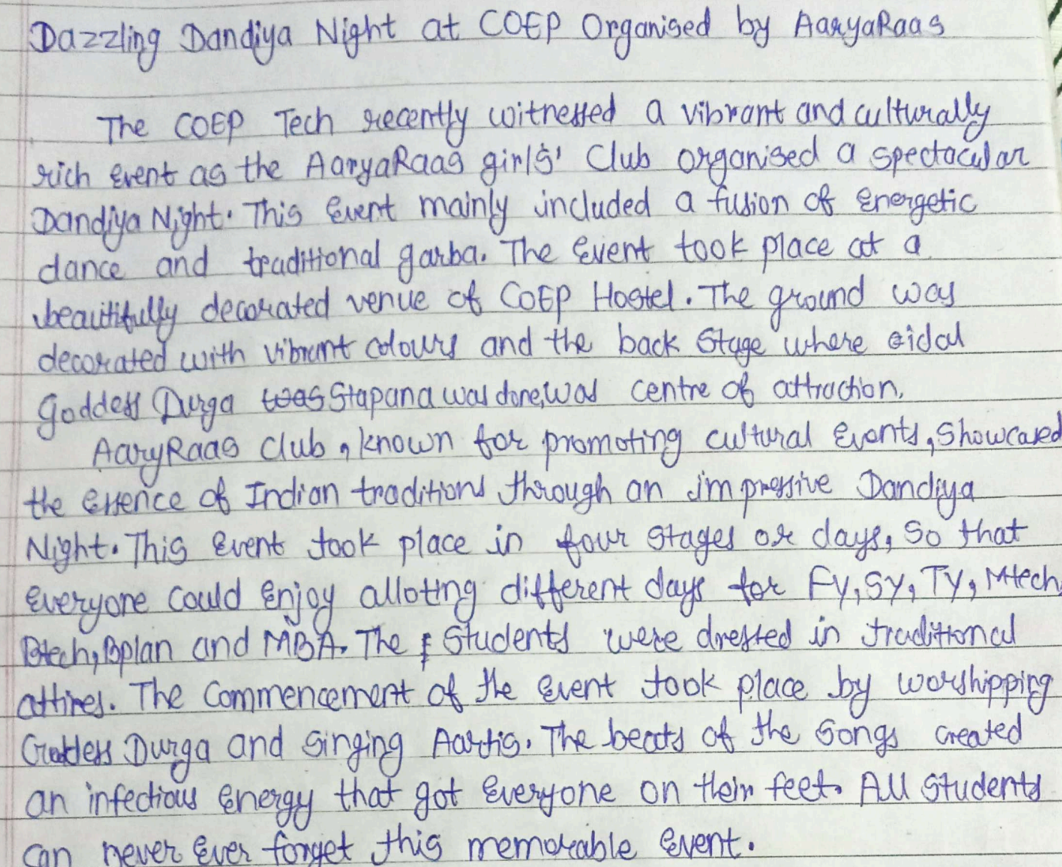 Dazzling Dandiya Night at COEP Organised by AaryaRaas
The COEP Tech recently witnessed a vibrant and culturally
rich event as the AaryaRaas girls' Club organised a spectacular
Dandiya Night. This Event mainly included a fusion of energetic
dance and traditional garba. The Event took place at a
beautifully decorated venue of COEP Hostel. The ground was
decorated with vibrant colours and the back Stage where eidol
goddess Durga was Stapana was done, was centre of attraction.
AaryRaas Club, known for promoting cultural Events, Showcased
the essence of Indian traditions through an impressive Dandiya
Night. This Event took place in four stages or days, So that
everyone could enjoy alloting different days for FY, SY, TY, Mtech
Btech, Bplan and MBA. The Students were dressed in traditional
attires. The Commencement of the Event took place by worshipping
Goddess Durga and singing Aartis. The beats of the Songs created
an infectious energy that got everyone on their feet. All Students
can never ever forget this memorable Event.